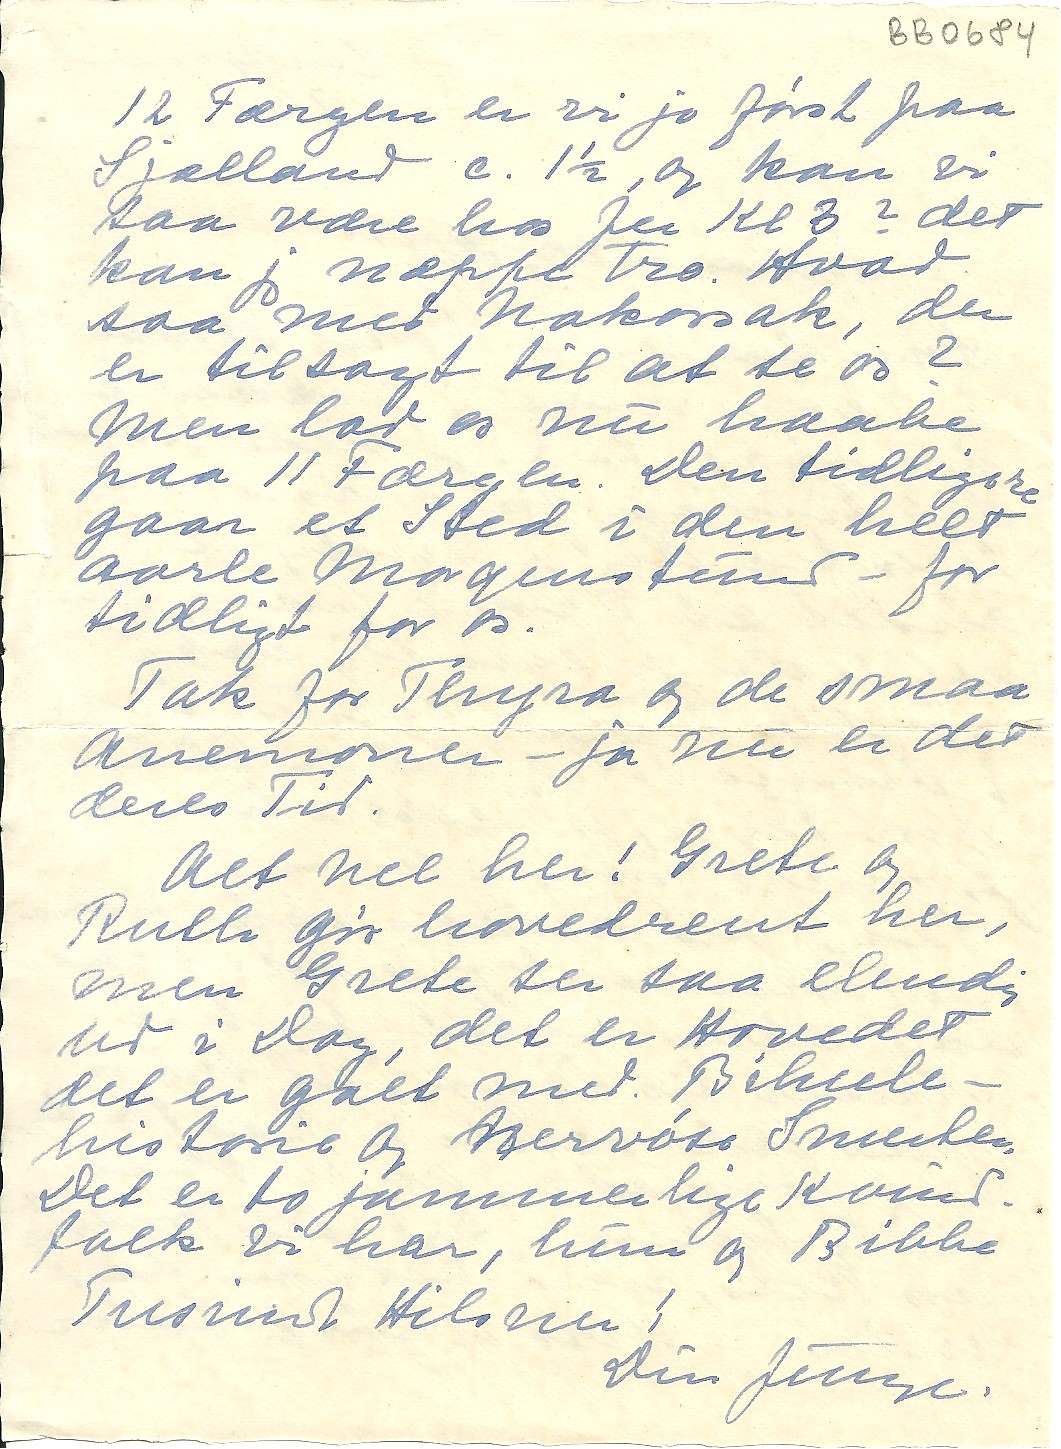 BB0684
12 Færgen er vi jo først paa
Sjælland c. 1½, og kan vi
saa være hos Jer Kl 3? det
kan jeg næppe tro. Hvad
saa med Nakorsak, der
er tilsagt til at se os?
Men lad os nu haabe
paa 11 Færgen. Den tidligere
gaar et Sted i den helt
aarle Morgenstund – for
tidligt for os.
Tak for Thyra og de smaa
Anemoner – ja nu er det
deres Tid.
Alt vel her! Grete og
Ruth gør hovedrent her,
men Grete ser saa elendig
ud i Dag, det er Hovedet
det er galt med. Bihule-
historie og nervøse Smerter.
Det er to jammerlige Kvind-
folk vi har, hun og Bibbe
Tusind Hilsner!
Din Junge.